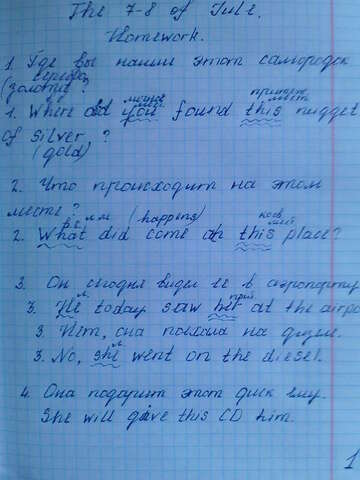 The 7-8 of Jule.
Homework.
1. Где вы нашли этот самородок
серебра
(золота) ?
личное
притяж
мест
1. Where did you found this nugget
of silver ?
(gold)
2. Что происходит на этом
месте ?
(happens)
2. What did come on this place?
3. Он сегодня видел её в аэропорту
3. He today saw her at the airpo
3. Нет, она поехала на дизеле.
3. No, she went on the diesel.
4. Она подарит этот диск ему.
She will give this CD him.
1